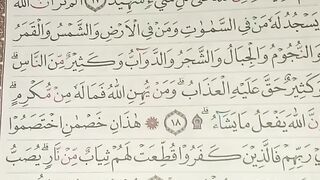 شَهِيدٌ ﴿١٧﴾ أَلَمْ تَرَ أَنَّ اللَّهَ
يَسْجُدُ لَهُ مَن فِي السَّمَاوَاتِ وَمَن فِي الْأَرْضِ وَالشَّمْسُ وَالْقَمَرُ
وَالنُّجُومُ وَالْجِبَالُ وَالشَّجَرُ وَالدَّوَابُّ وَكَثِيرٌ مِّنَ النَّاسِ ۖ
وَكَثِيرٌ حَقَّ عَلَيْهِ الْعَذَابُ ۗ وَمَن يُهِنِ اللَّهُ فَمَا لَهُ مِن مُّكْرِمٍ ۚ
إِنَّ اللَّهَ يَفْعَلُ مَا يَشَاءُ ۩ ﴿١٨﴾ ۞ هَٰذَانِ خَصْمَانِ اخْتَصَمُوا
فِي رَبِّهِمْ ۖ فَالَّذِينَ كَفَرُوا قُطِّعَتْ لَهُمْ ثِيَابٌ مِّن نَّارٍ يُصَبُّ